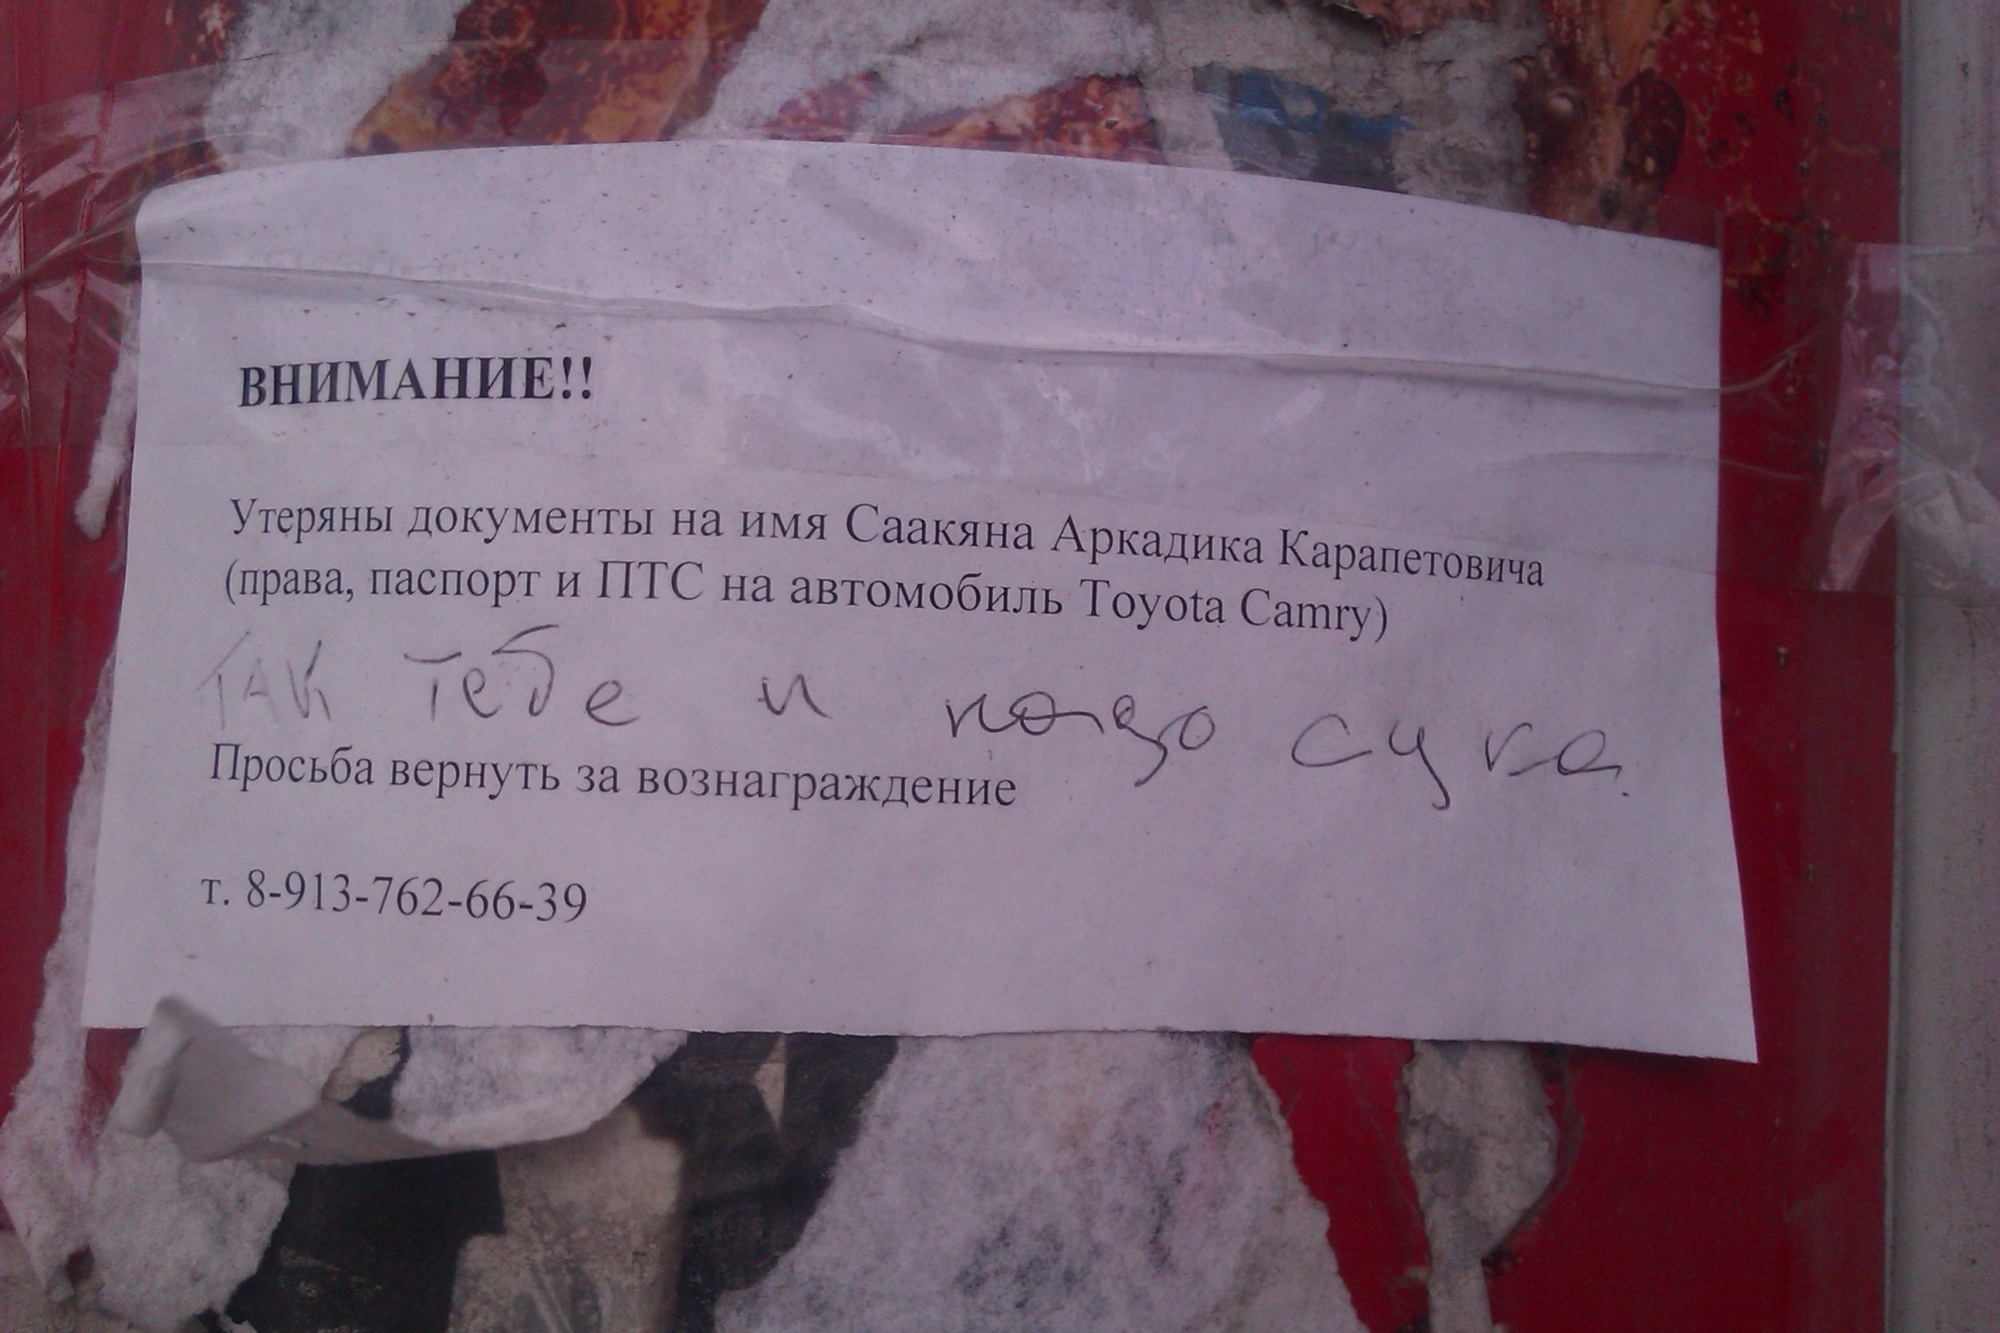 ВНИМАНИЕ!!
Утеряны документы на имя Саакяна Аркадика Карапетовича
(права, паспорт и ПТС на автомобиль Toyota Camry)
ТАК тебе и надо сука.
Просьба вернуть за вознаграждение
т. 8-913-762-66-39